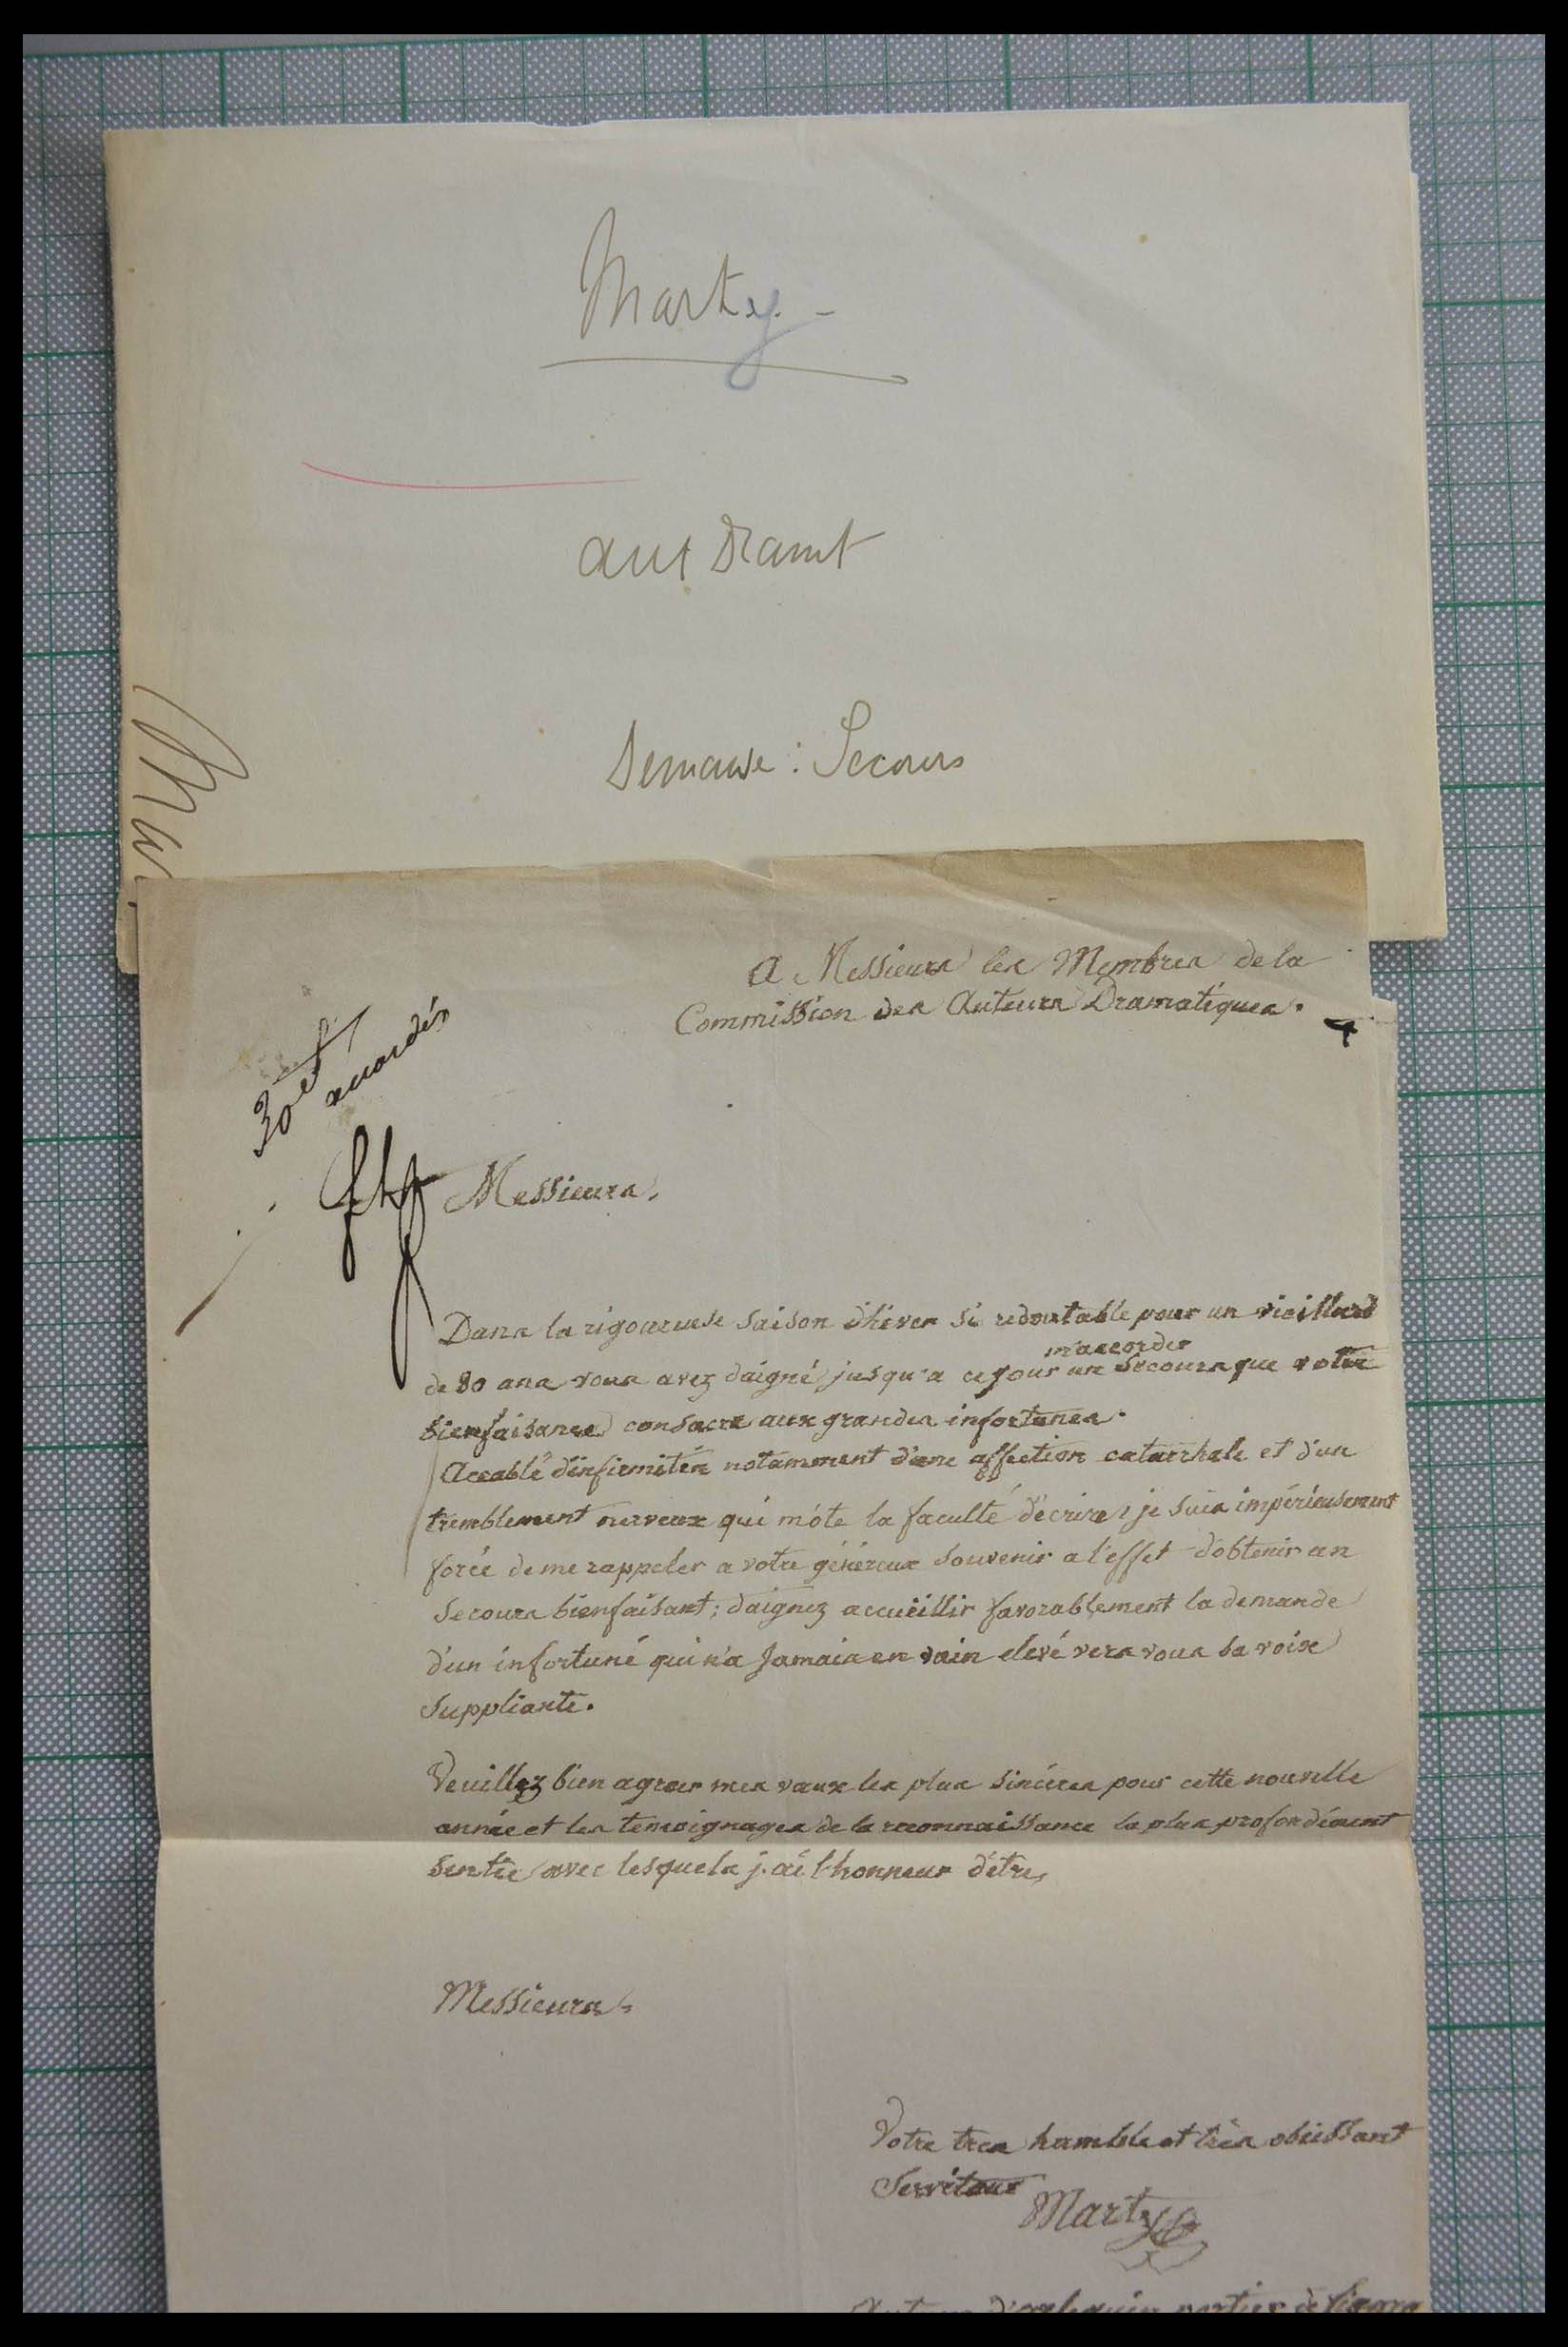 Marty -
aut Dramt
Demande : Secours
Mar
A Messieurs les Membres de la
Commission des Auteurs Dramatiques.
30 f
accordés
Messieurs,
Dans la rigoureuse saison d'hiver si redoutable pour un vieillard
m'accorder
de 80 ans vous avez daigné jusqu'a ce jour un secours que votre
bienfaisance consacre aux grandes infortunes.
Accablé d'infirmités notamment d'une affection catarrhale et d'un
tremblement nerveux qui m'ote la faculté d'écrire, je suis impérieusement
forcé de me rappeler a votre généreux souvenir a l'effet d'obtenir un
secours bienfaisant; daignez accueillir favorablement la demande
d'un infortuné qui n'a jamais en vain elevé vers vous sa voix
suppliante.
Veuillez bien agreer mes vaux les plus sincères pour cette nouvelle
année et les temoignages de la reconnaissance la plus profondément
sentie avec lesquels j'ai l'honneur d'être,
Messieurs,
Votre tres humble et très obéissant
Serviteur
Marty
d'arlequin portier